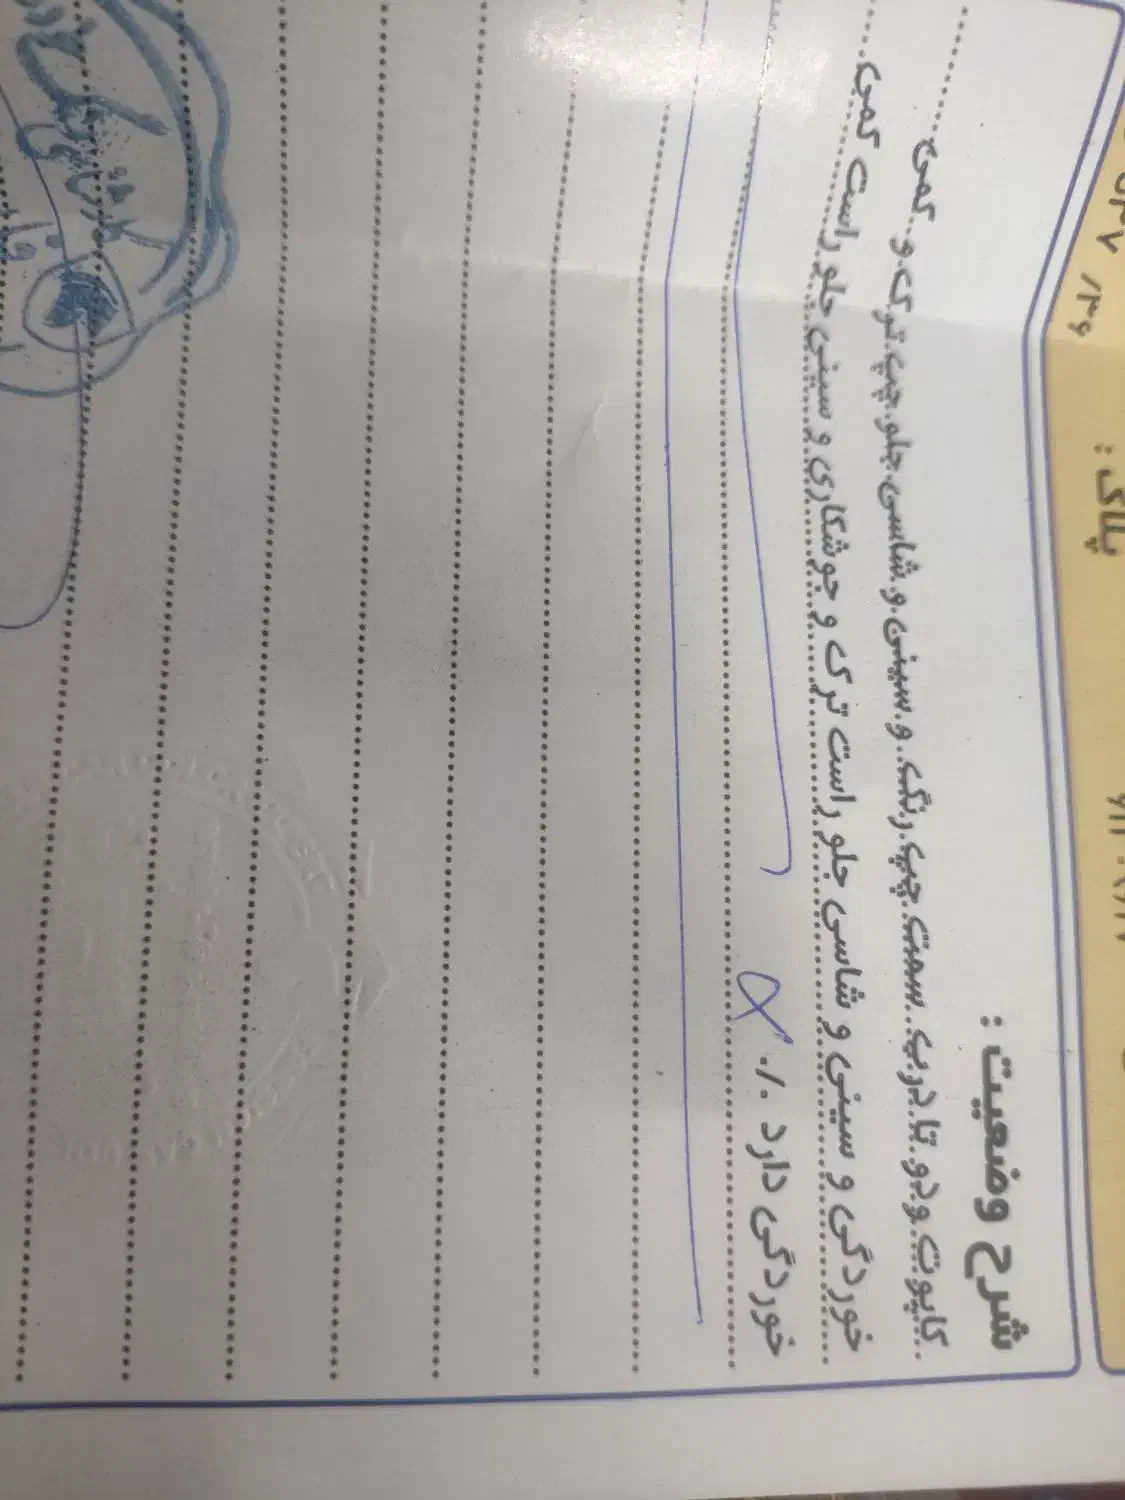 پلاک :
شرح وضعیت :
کاپوت و دو تا درب سمت چپ رنگ و سینی و شاسی جلو چپ ترک و کمی
خوردگی و سینی و شاسی جلو راست ترک و جوشکاری و سینی جلو راست کمی
خوردگی دارد ./.